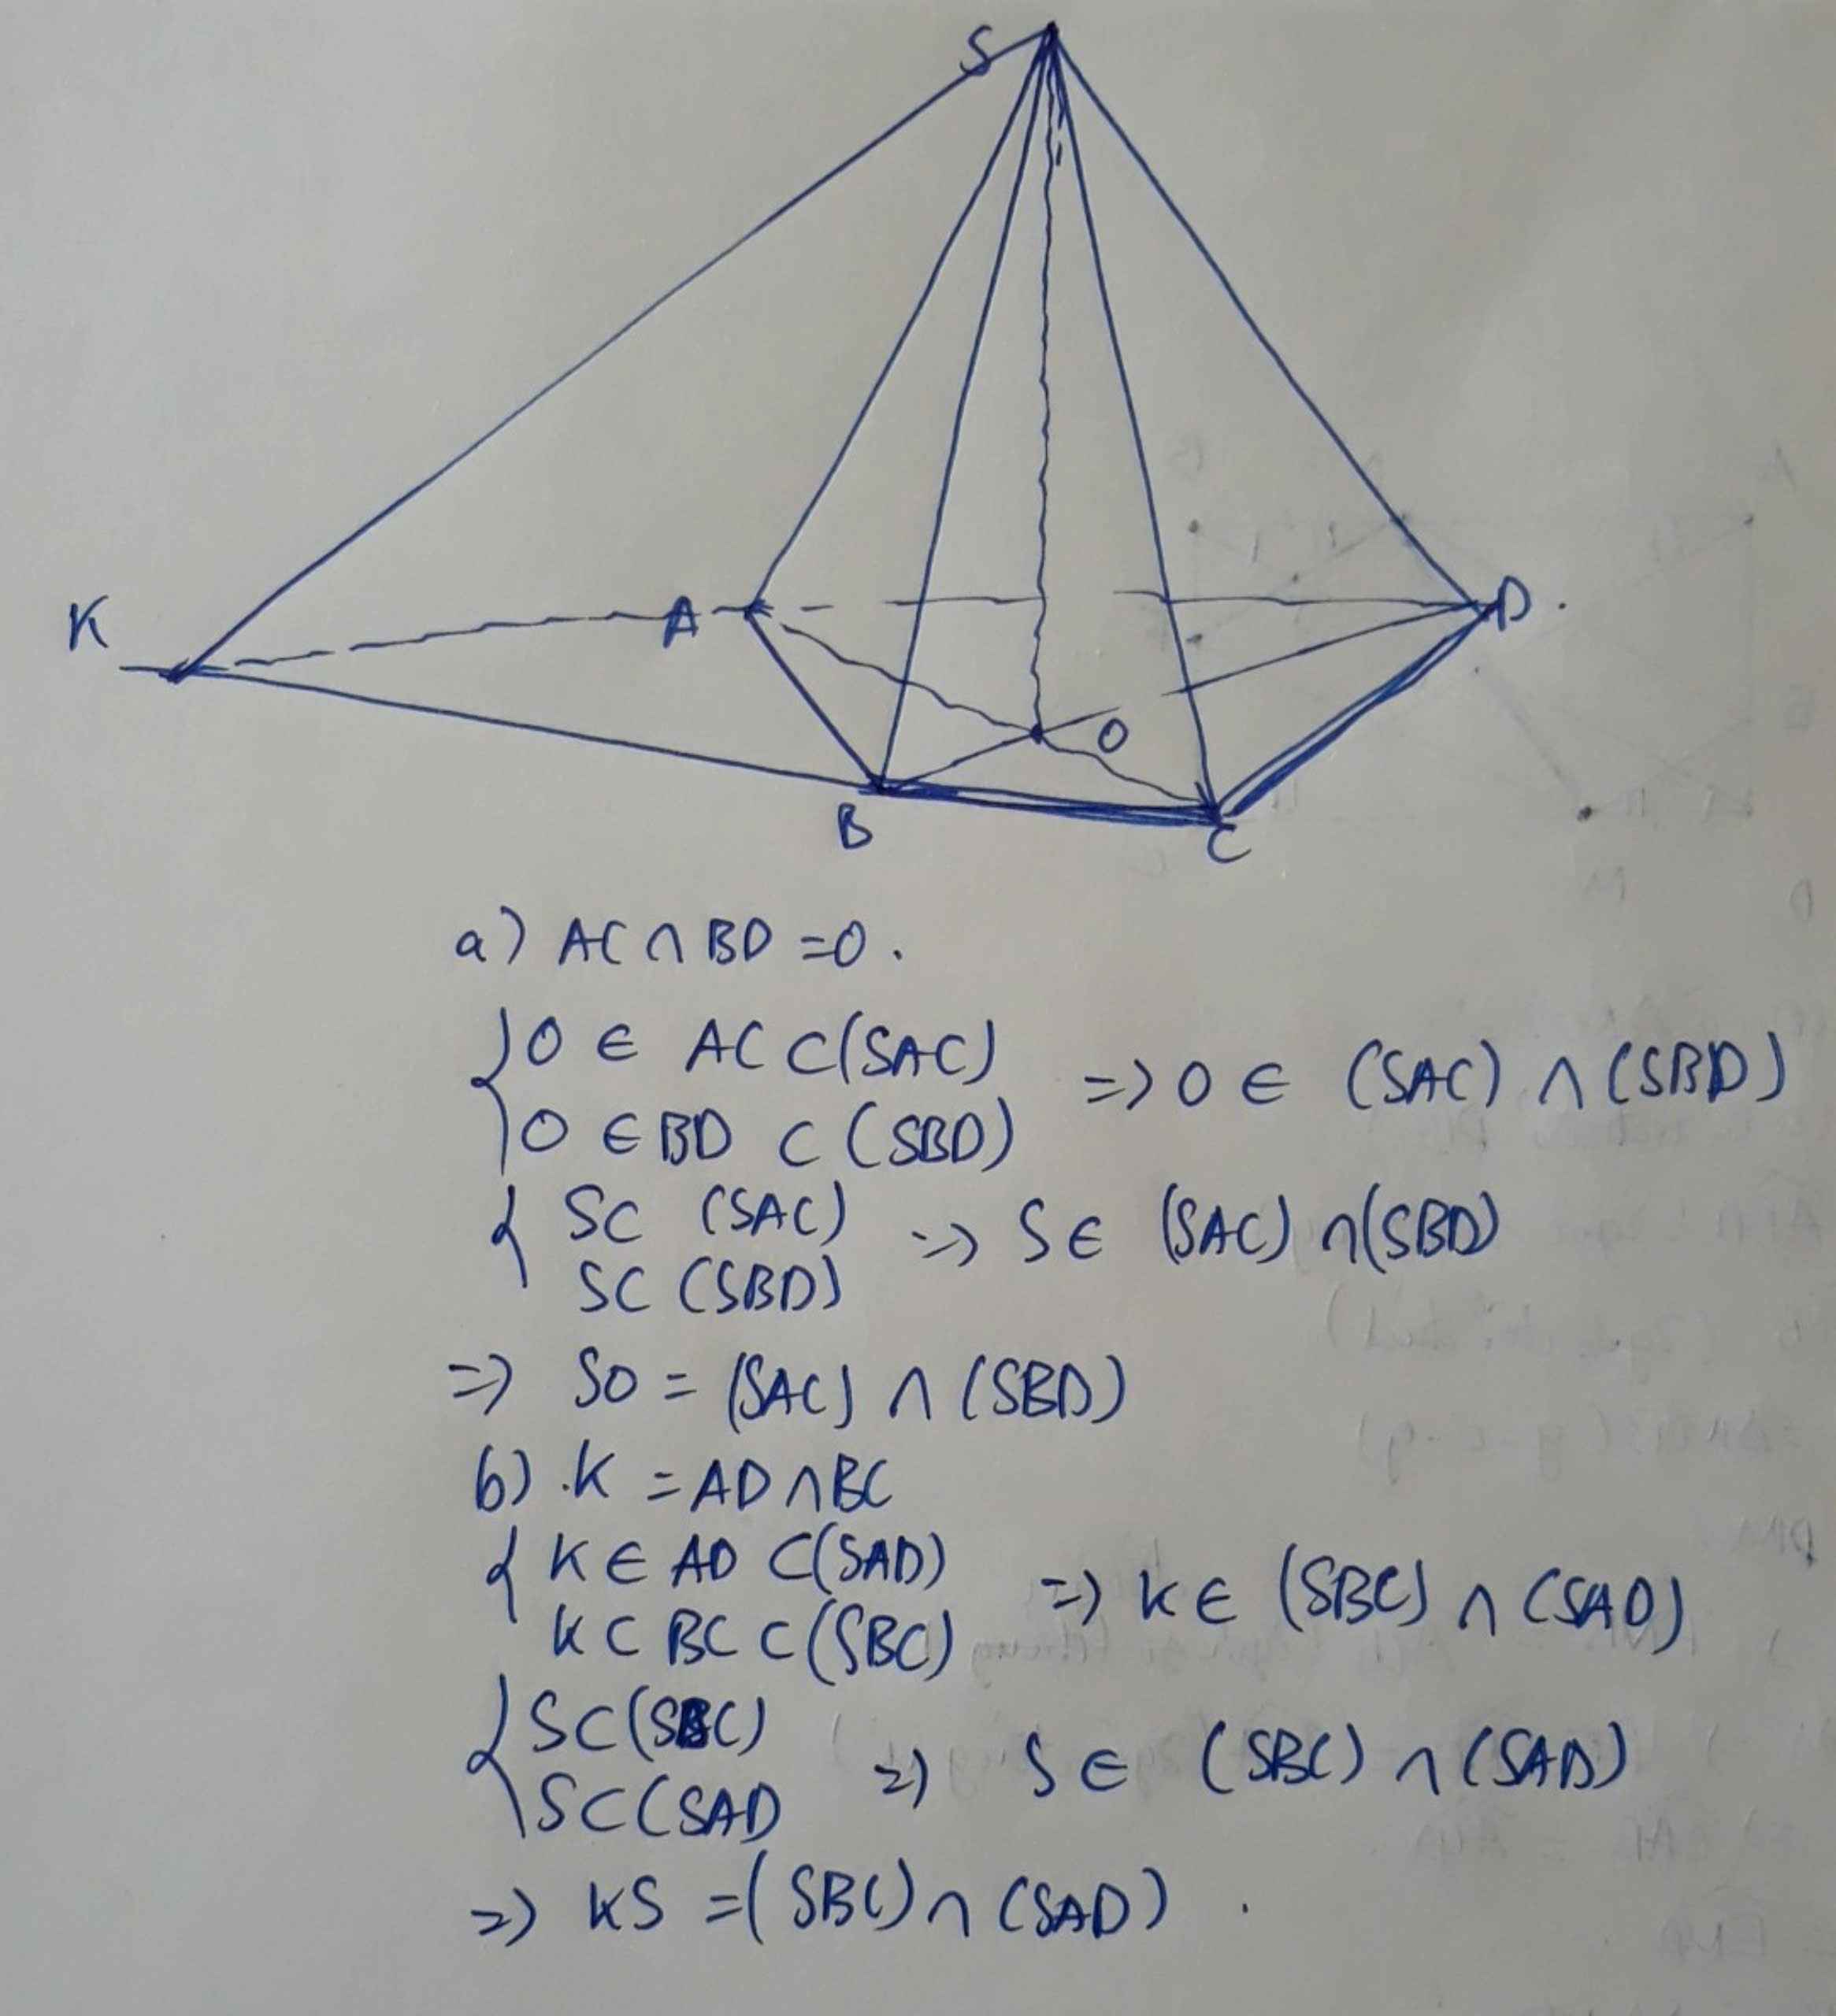 S
K
A
D.
O
B
C
a) AC ∩ BD = O.
{ O ∈ AC ⊂ (SAC)
O ∈ BD ⊂ (SBD)
=> O ∈ (SAC) ∩ (SBD)
{ S ⊂ (SAC)
S ⊂ (SBD)
=> S ∈ (SAC) ∩ (SBD)
=> SO = (SAC) ∩ (SBD)
b) .K = AD ∩ BC
{ K ∈ AD ⊂ (SAD)
K ⊂ BC ⊂ (SBC)
=> K ∈ (SBC) ∩ (SAD)
{ S ⊂ (SBC)
S ⊂ (SAD
=> S ∈ (SBC) ∩ (SAD)
=> KS = (SBC) ∩ (SAD).